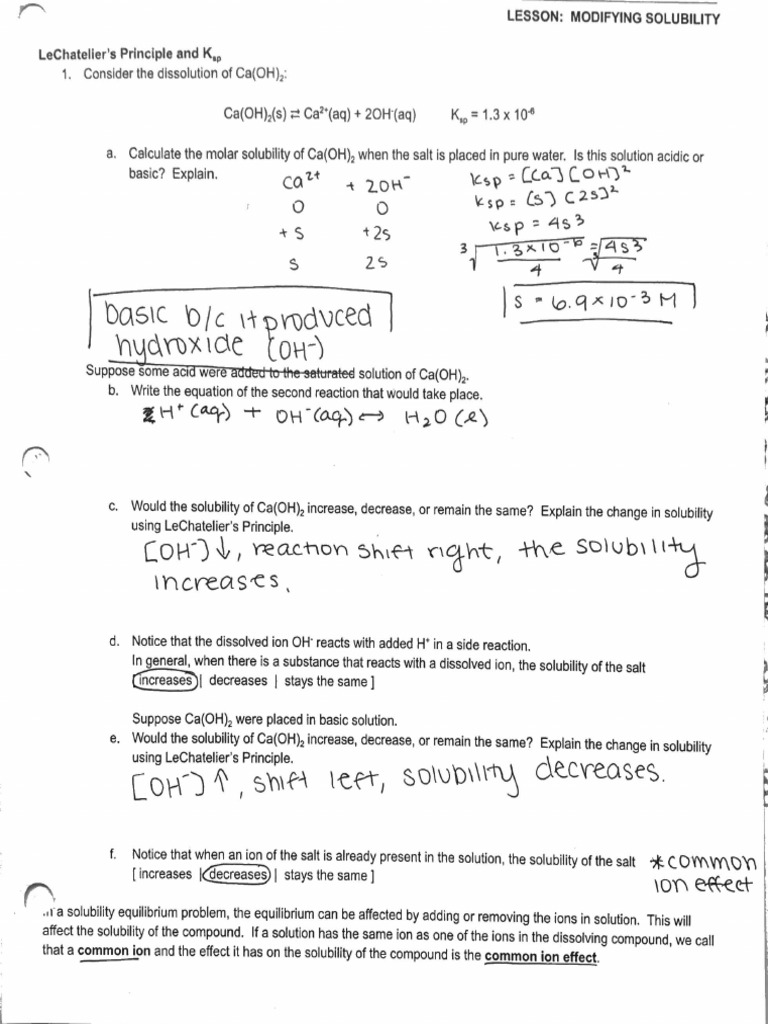 LESSON: MODIFYING SOLUBILITY
LeChatelier's Principle and Ksp
1. Consider the dissolution of Ca(OH)₂:
Ca(OH)₂(s) ⇌ Ca²⁺(aq) + 2OH⁻(aq) Ksp = 1.3 x 10⁻⁶
a. Calculate the molar solubility of Ca(OH)₂ when the salt is placed in pure water. Is this solution acidic or
basic? Explain.
Ca²⁺ + 2OH⁻
O O
+S +2S
S 2S
Ksp = [Ca][OH]²
Ksp = [S][2S]²
Ksp = 4S³
³√1.3×10⁻⁶/4 = ³√4S³/4
S = 6.9×10⁻³ M
basic b/c it produced
hydroxide [OH⁻)
Suppose some acid were added to the saturated solution of Ca(OH)₂.
b. Write the equation of the second reaction that would take place.
H⁺(aq) + OH⁻(aq) ↔ H₂O(l)
c. Would the solubility of Ca(OH)₂ increase, decrease, or remain the same? Explain the change in solubility
using LeChatelier's Principle.
[OH⁻] ↓, reaction shift right, the solubility
increases.
d. Notice that the dissolved ion OH⁻ reacts with added H⁺ in a side reaction.
In general, when there is a substance that reacts with a dissolved ion, the solubility of the salt
[increases | decreases | stays the same ]
Suppose Ca(OH)₂ were placed in basic solution.
e. Would the solubility of Ca(OH)₂ increase, decrease, or remain the same? Explain the change in solubility
using LeChatelier's Principle.
[OH⁻] ↑, shift left, solubility decreases.
f. Notice that when an ion of the salt is already present in the solution, the solubility of the salt
[ increases | decreases | stays the same ]
*common
ion effect
In a solubility equilibrium problem, the equilibrium can be affected by adding or removing the ions in solution. This will
affect the solubility of the compound. If a solution has the same ion as one of the ions in the dissolving compound, we call
that a common ion and the effect it has on the solubility of the compound is the common ion effect.